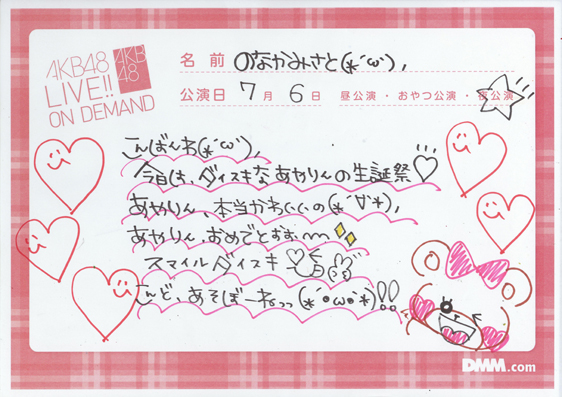 AKB48
LIVE!!
ON DEMAND
AKB
48
名前 のなかみさと(*´ω`),
公演日 7月6日 昼公演・おやつ公演・夜公演
こんばんわ(*´ω`),
今日は、ダイスキなあやりんの生誕祭♡
あやりん、本当かわいいの(*´∀`*),
あやりん、おめでとおお
スマイルダイスキ♡
こんど、あそぼーねっっ(*´•ω•`*)!!
DMM.com